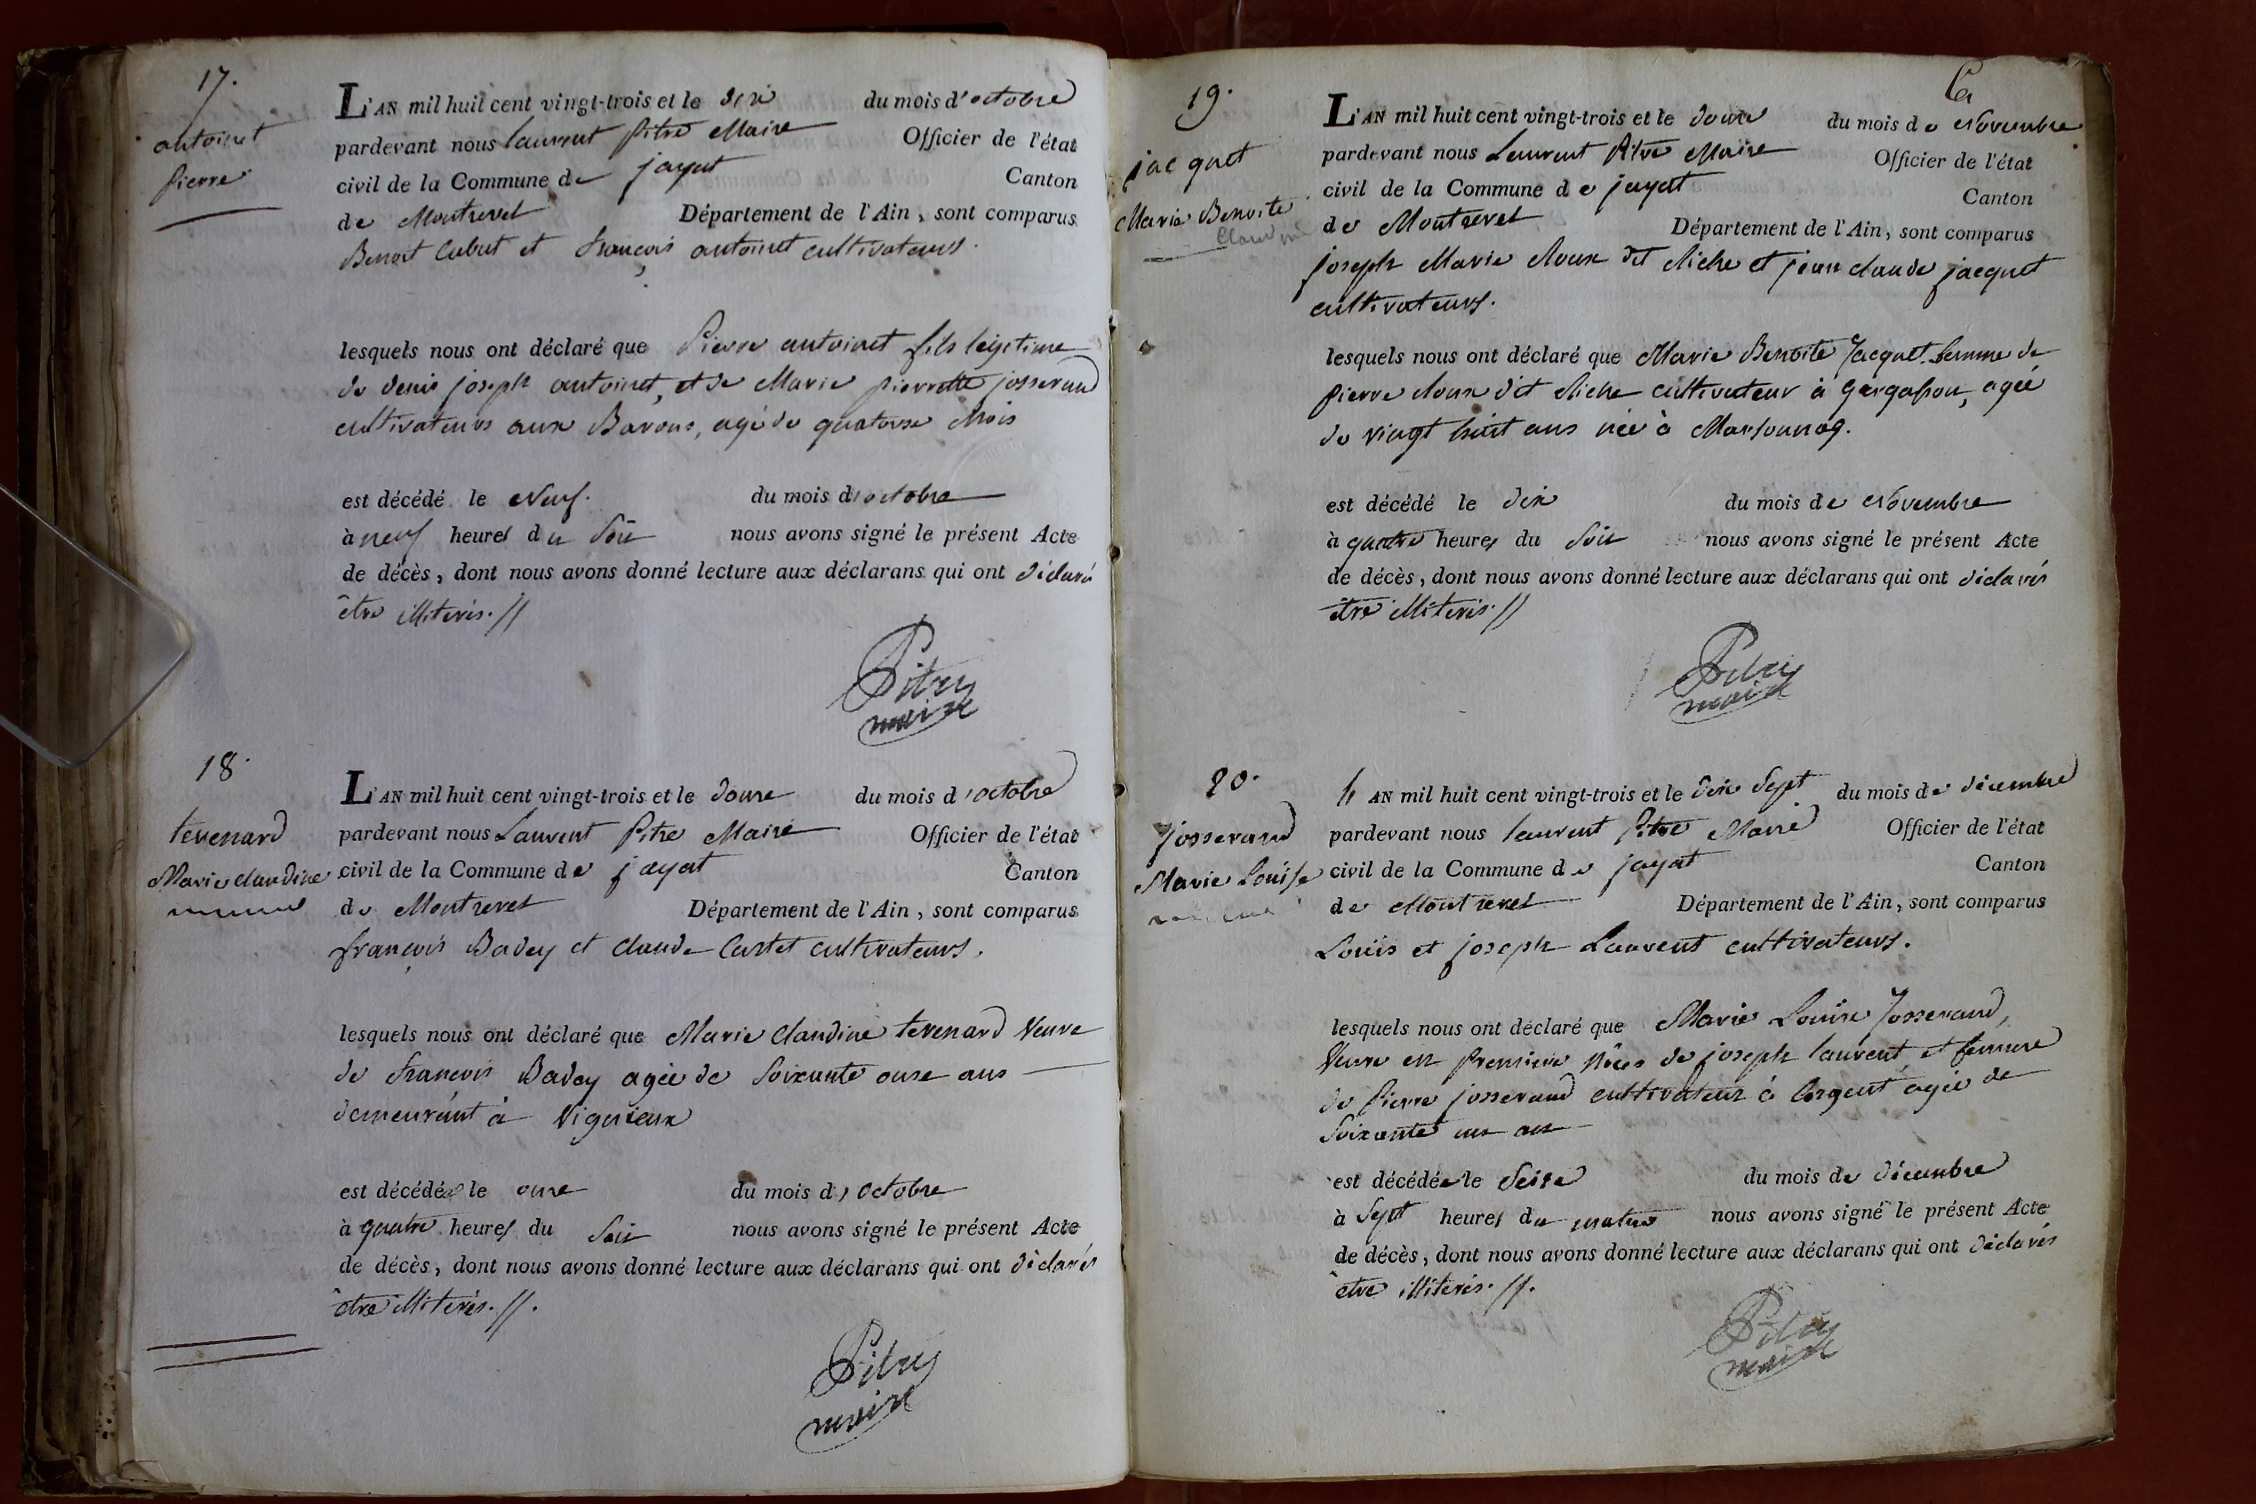 17.
antoinet
pierre
L'AN mil huit cent vingt-trois et le dix du mois d'octobre
pardevant nous laurent Pitre Maire Officier de l'état
civil de la Commune de jayat Canton
de Montrevel Département de l'Ain, sont comparus
Benoit Cabut et françois antoinet cultivateurs.
lesquels nous ont déclaré que Pierre antoinet fils légitime
de denis joseph antoinet, et de Marie pierrette josserand
cultivateurs aux Barons, agé de quatorse Mois
est décédé le Neuf. du mois d'octobre
à neuf heures du Soir nous avons signé le présent Acte
de décès, dont nous avons donné lecture aux déclarans qui ont déclaré
être illiterés.//
Pitre
maire
18.
tevenard
Marie claudine
L'AN mil huit cent vingt-trois et le douse du mois d'octobre
pardevant nous Laurent Pitre Maire Officier de l'état
civil de la Commune de jayat Canton
de Montrevel Département de l'Ain, sont comparus
françois Badey et claude Cartet cultivateurs.
lesquels nous ont déclaré que Marie claudine tevenard Veuve
de francois Badey agée de Soixante onse ans
demeurant à Vigurieux
est décédée le onse du mois d'octobre
à quatre heures du Soir nous avons signé le présent Acte
de décès, dont nous avons donné lecture aux déclarans qui ont déclarés
être illiterés.//.
Pitre
maire
19.
jacquet
Marie Benoite
Claudine
L'AN mil huit cent vingt-trois et le douse du mois de Novembre
pardevant nous Laurent Pitre Maire Officier de l'état
civil de la Commune de jayat Canton
de Montrevel Département de l'Ain, sont comparus
joseph Marie doux dit cliche et jean claude jacquet
cultivateurs.
lesquels nous ont déclaré que Marie Benoite Jacquet femme de
pierre doux dit cliche cultivateur à Gargasson, agée
de vingt huit ans née à Marsonnas.
est décédé le dix du mois de Novembre
à quatre heures du Soir nous avons signé le présent Acte
de décès, dont nous avons donné lecture aux déclarans qui ont déclarés
être illiterés.//
Pitre
maire
20.
Josserand
Marie Louise
L'AN mil huit cent vingt-trois et le dix Sept du mois de décembre
pardevant nous laurent Pitre Maire Officier de l'état
civil de la Commune de jayat Canton
de Montrevel Département de l'Ain, sont comparus
Louis et joseph Laurent cultivateurs.
lesquels nous ont déclaré que Marie Louise Josserand,
Veuve en Premiere Nôces de joseph laurent, et femme
de Pierre josserand cultivateur à Corgent agée de
Soixante un an
est décédée le Seise du mois de décembre
à Sept heures du matin nous avons signé le présent Acte
de décès, dont nous avons donné lecture aux déclarans qui ont déclarés
être illiterés.//.
Pitre
maire